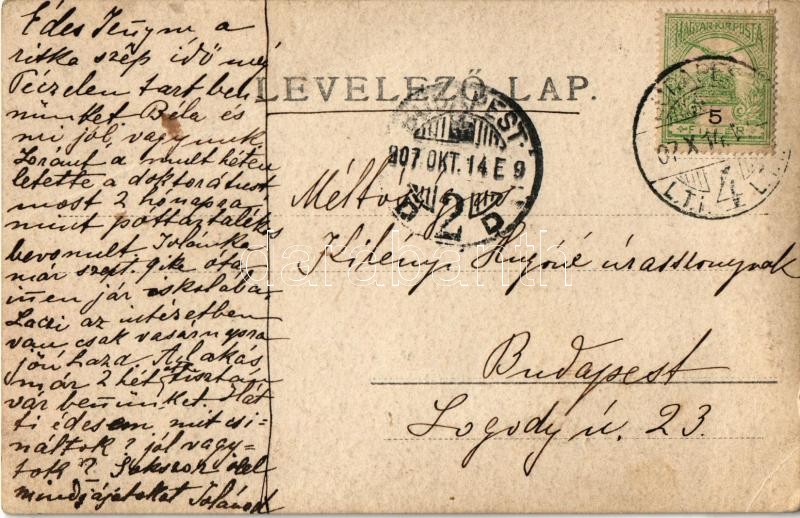 Édes Jenym a
ritka szép idő még
Péczelen tart ben-
nünket Béla és
mi jól vagyunk
Loránt a mult héten
letette a doktorátust
most 2 hónapra
mint póttartalékos
bevonult Jolánka
már szept. 9ike óta
innen jár iskolába.
Laczi az intézetben
van csak vasárnapra
jön haza A lakás
már 2 hét óta tisztán
vár bennünket. Hát
ti édesem mit csi-
náltok? jól vagy-
tok? Sokszor ölel
mindjájatokat Jolánod
LEVELEZŐ-LAP.
Méltóságos
Kirényi Hugóné úrasszonynak
Budapest
Logody u. 23.
MAGYAR KIR. POSTA
5
BUDAPEST
907 OKT. 14 E 9
2
D D
BUDAPEST
07 X 14
4
L.T.
darabanth